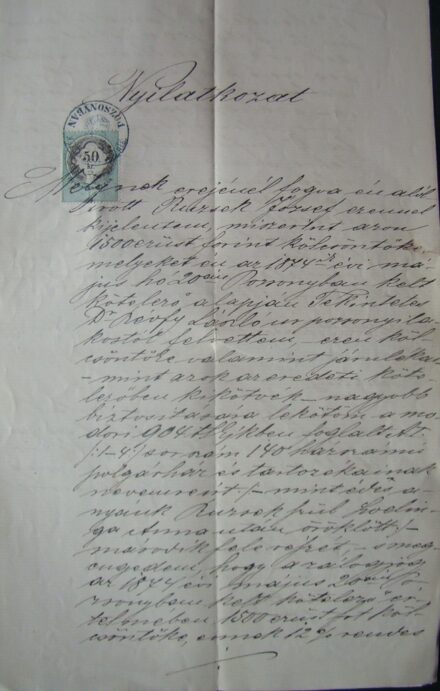 Nyilatkozat
POZSONYBAN
50
kr.
Melynek erejénél fogva én alól
irott Ruzsek József ezennel
kijelentem, miszerint azon
1500 ezüst forint kölcsöntőke
melyeket én az 1874 ik évi má-
jus hó 20 án Pozsonyban kelt
kötelező alapján Tekintetes
Dr Révfy László ur pozsonyi la-
kostól felvettem, ezen köl-
csöntőke valamint járuléka
- mint azok az eredeti köte-
lezőben kikötvék - nagyobb
biztositására lekötöm a mo-
dori 904 tkvjkben foglalt A.I.
/: 1-4 :/ sor szám 140 házszámu
polgárház és tartozékainak
nevemre irt /:- mint édes a-
nyánk Ruzsek szül.
Anna után öröklött :/
második fele részét, - s meg-
engedem, hogy a zálogjog
az 1874 évi május 20 án Po-
zsonyban kelt kötelező ér-
telmében 1500 ezüst frt köl-
csöntőke, ennek 12 % rendes